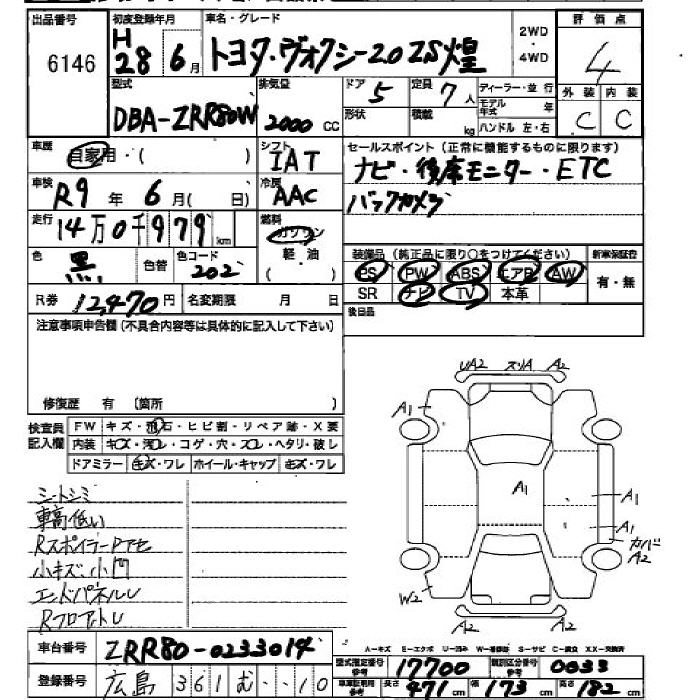 出品番号 初度登録年月 車名・グレード 2WD 評価点
6146 H28 6月 トヨタ・ヴォクシー2.0 ZS煌 4WD 4
型式 排気量 ドア 定員 ディーラー・並行 外装 内装
DBA-ZRR80W 2000 CC 5 7人 モデル年式 年 C C
形状 積載 kg ハンドル 左・右
車歴 自家用・( ) シフト IAT セールスポイント(正常に機能するものに限ります)
ナビ・後席モニター・ETC
車検 R9年 6月( 日) 冷房 AAC バックカメラ
走行 14万0千979km 燃料 ガソリン
軽・油
( )
色 黒 色替 色コード 202 装備品(純正品に限り○をつけてください) 新車保証書
PS PW ABS エアB AW 有・無
R券 12,470円 名変期限 月 日 SR ナビ TV 本革
注意事項申告欄(不具合内容等は具体的に記入して下さい) 後日品
修復歴 有 (箇所 )
検査員記入欄 FW キズ・飛石・ヒビ割・リペア跡・X要
内装 キズ・汚レ・コゲ・穴・スレ・ヘタリ・破レ
ドアミラー キズ・ワレ ホイール・キャップ キズ・ワレ
シートシミ
車高低い
Rスポイラー
小キズ、小凹
エンドパネルU
Rフロアトレ
UA2 スリA A2
A1
A1
A1
A1
カバー
A2
W2
A2 A2
車台番号 ZRR80-0233014
A-キズ E-エクボ U-凹み W-補修跡 S-サビ C-腐食 XX-交換済
型式指定番号 参考 17700 類別区分番号 参考 0033
登録番号 広島 361 む ・・10
車庫証明用 参考 長さ 471cm 幅 173cm 高さ 182cm